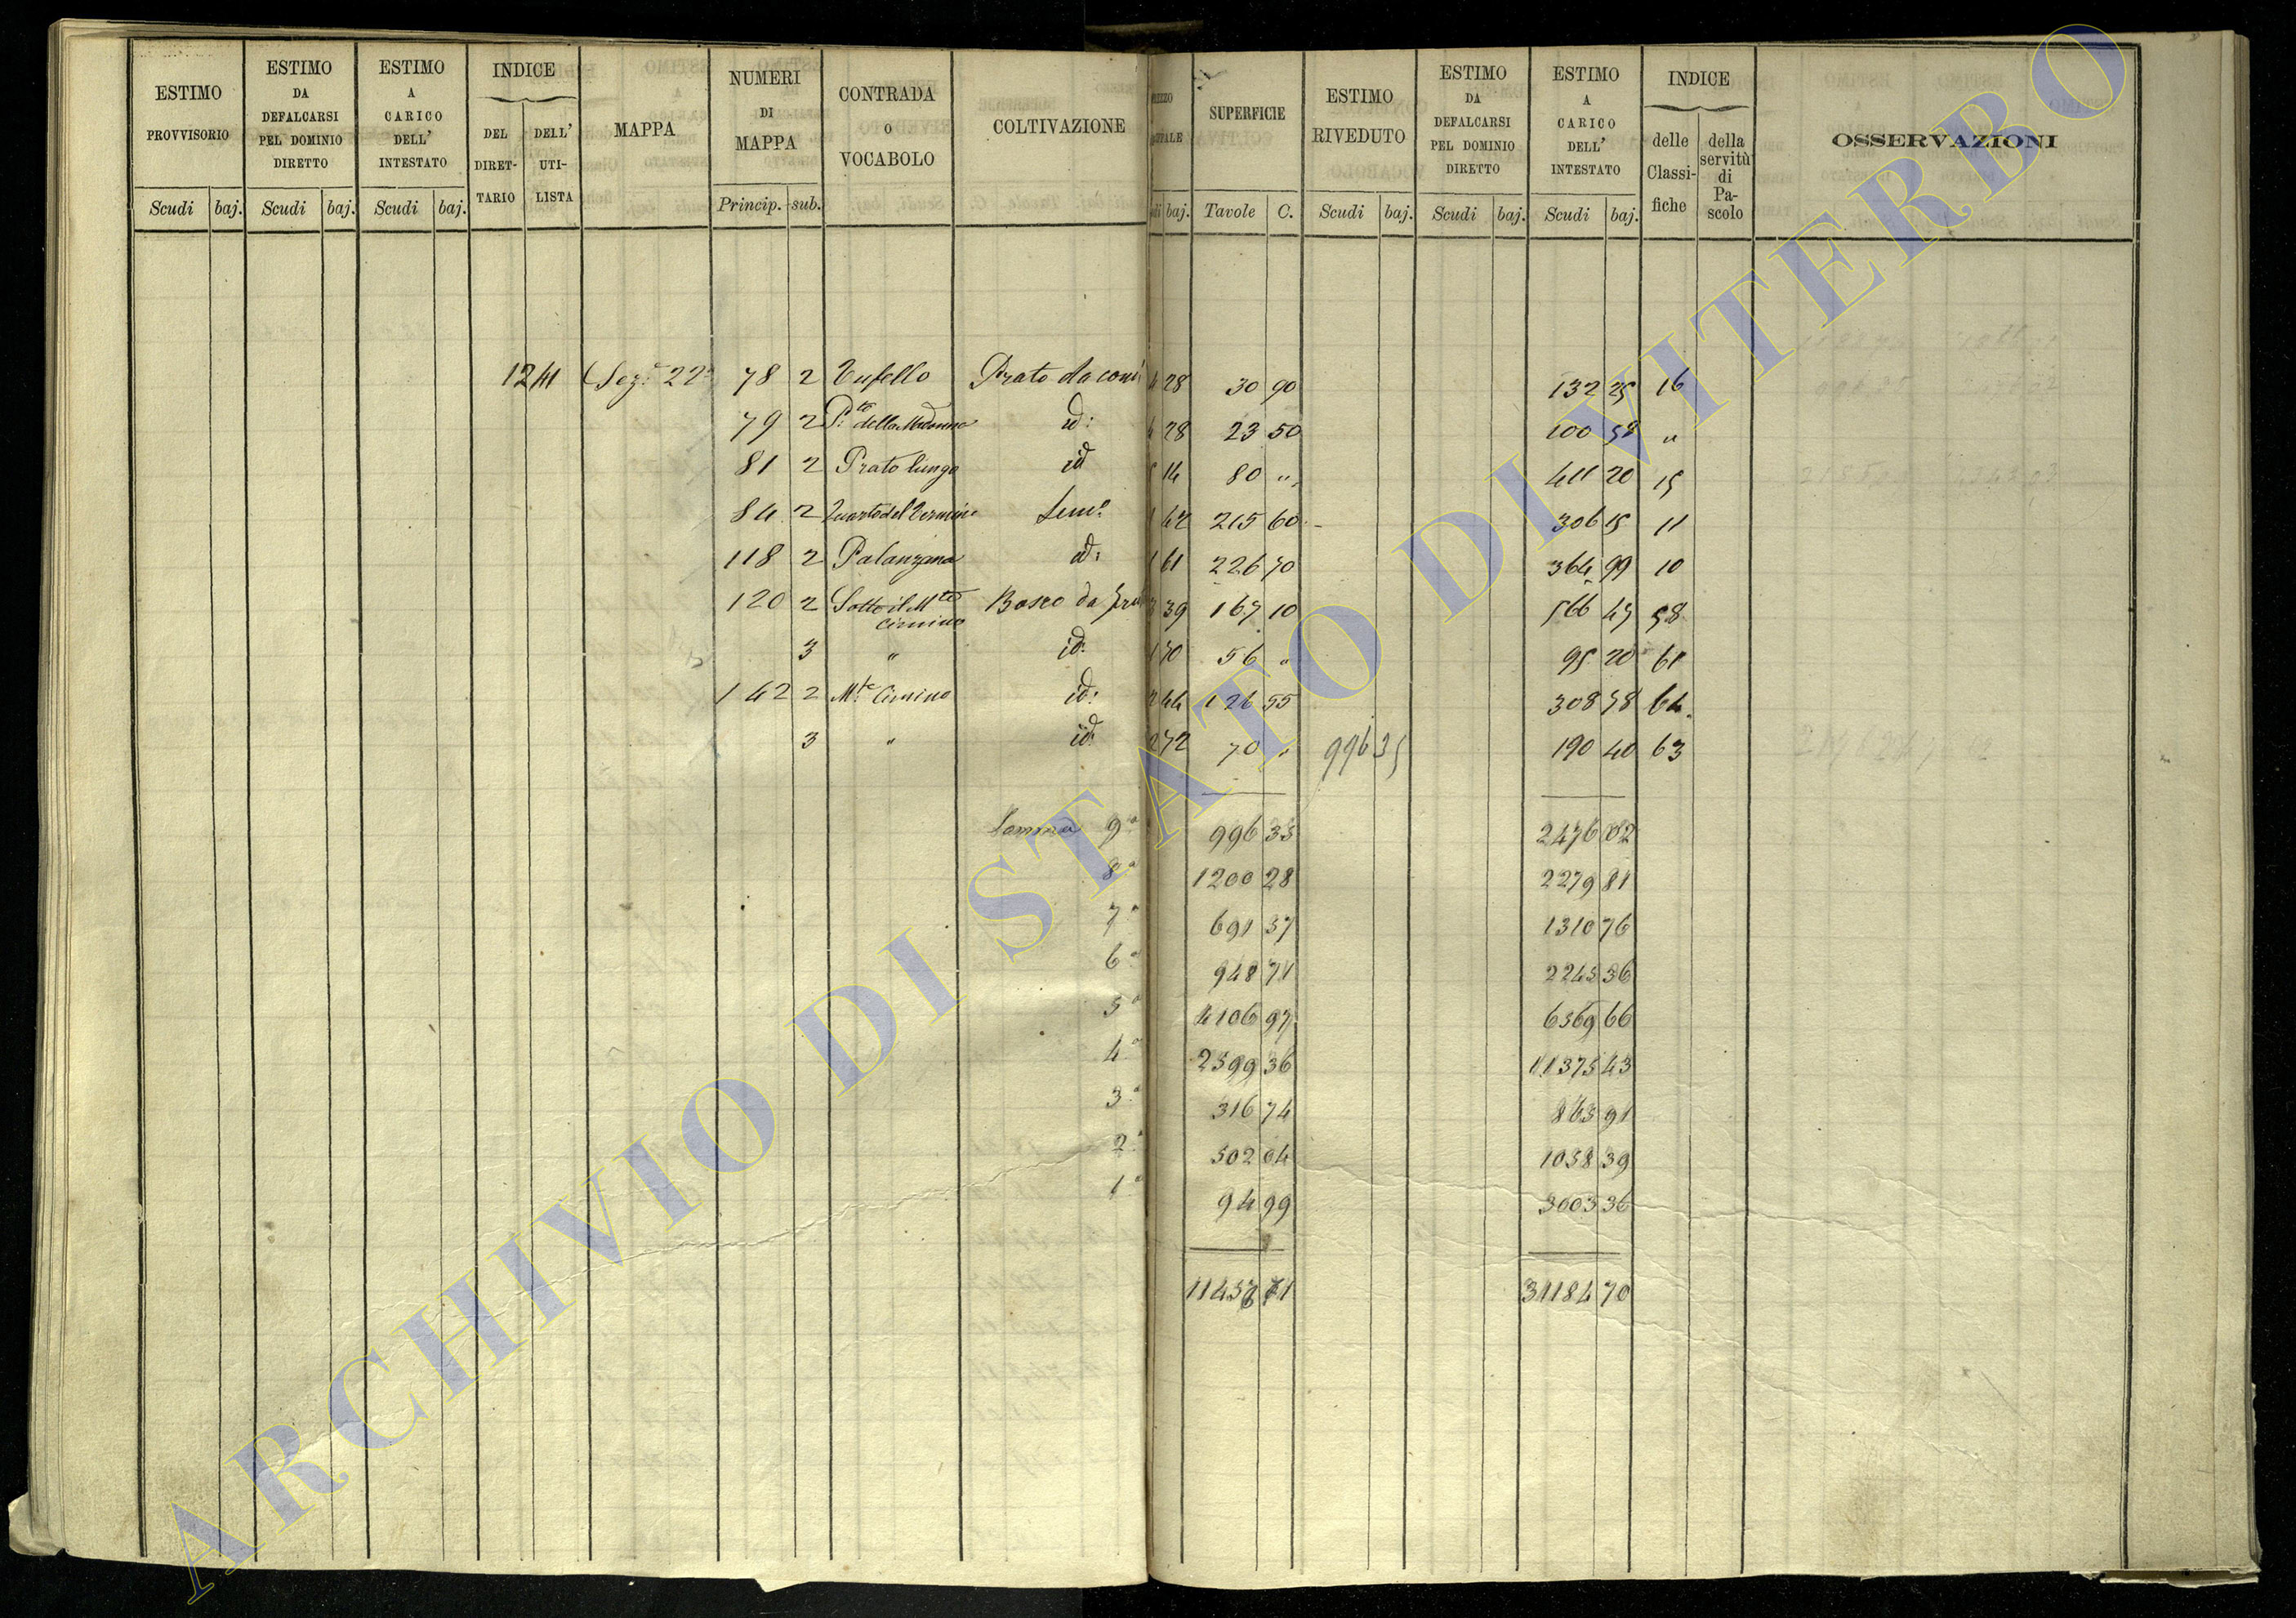 ESTIMO PROVVISORIO Scudi baj.
ESTIMO DA DEFALCARSI PEL DOMINIO DIRETTO Scudi baj.
ESTIMO A CARICO DELL' INTESTATO Scudi baj.
INDICE DEL DIRET-TARIO DELL' UTI-LISTA
MAPPA
NUMERI DI MAPPA Princip. sub.
CONTRADA O VOCABOLO
COLTIVAZIONE
baj.
SUPERFICIE Tavole C.
ESTIMO RIVEDUTO Scudi baj.
ESTIMO DA DEFALCARSI PEL DOMINIO DIRETTO Scudi baj.
ESTIMO A CARICO DELL' INTESTATO Scudi baj.
INDICE delle Classi-fiche della servitù di Pa-scolo
OSSERVAZIONI
Sez.e 22a 78 2 Tufello Prato da 28 30 90 132 25 16
79 2 P.te della Madonna id: 28 23 50 100 58 "
81 2 Prato lungo id 14 80 " 411 20 15
84 2 Quarto del Termine Sem.o 42 215 60 306 15 11
118 2 Palanzana id: 61 226 70 364 99 10
120 2 Sotto il Mte Cimino Bosco da 39 167 10 566 47 58
3 " id: 70 56 " 95 20 61
142 2 M.te Cimino id: 44 126 55 308 78 64
3 " id: 72 70 " 996 35 190 40 63
Somma 9a 996 35 2476 02
8a 1200 28 2279 81
7a 691 37 1310 76
6a 948 71 2245 36
5a 4106 97 6369 66
4a 2599 36 11375 43
3a 316 74 865 91
2a 502 04 1058 39
1a 94 99 3003 36
31184 70
ARCHIVIO DI STATO DI VITERBO